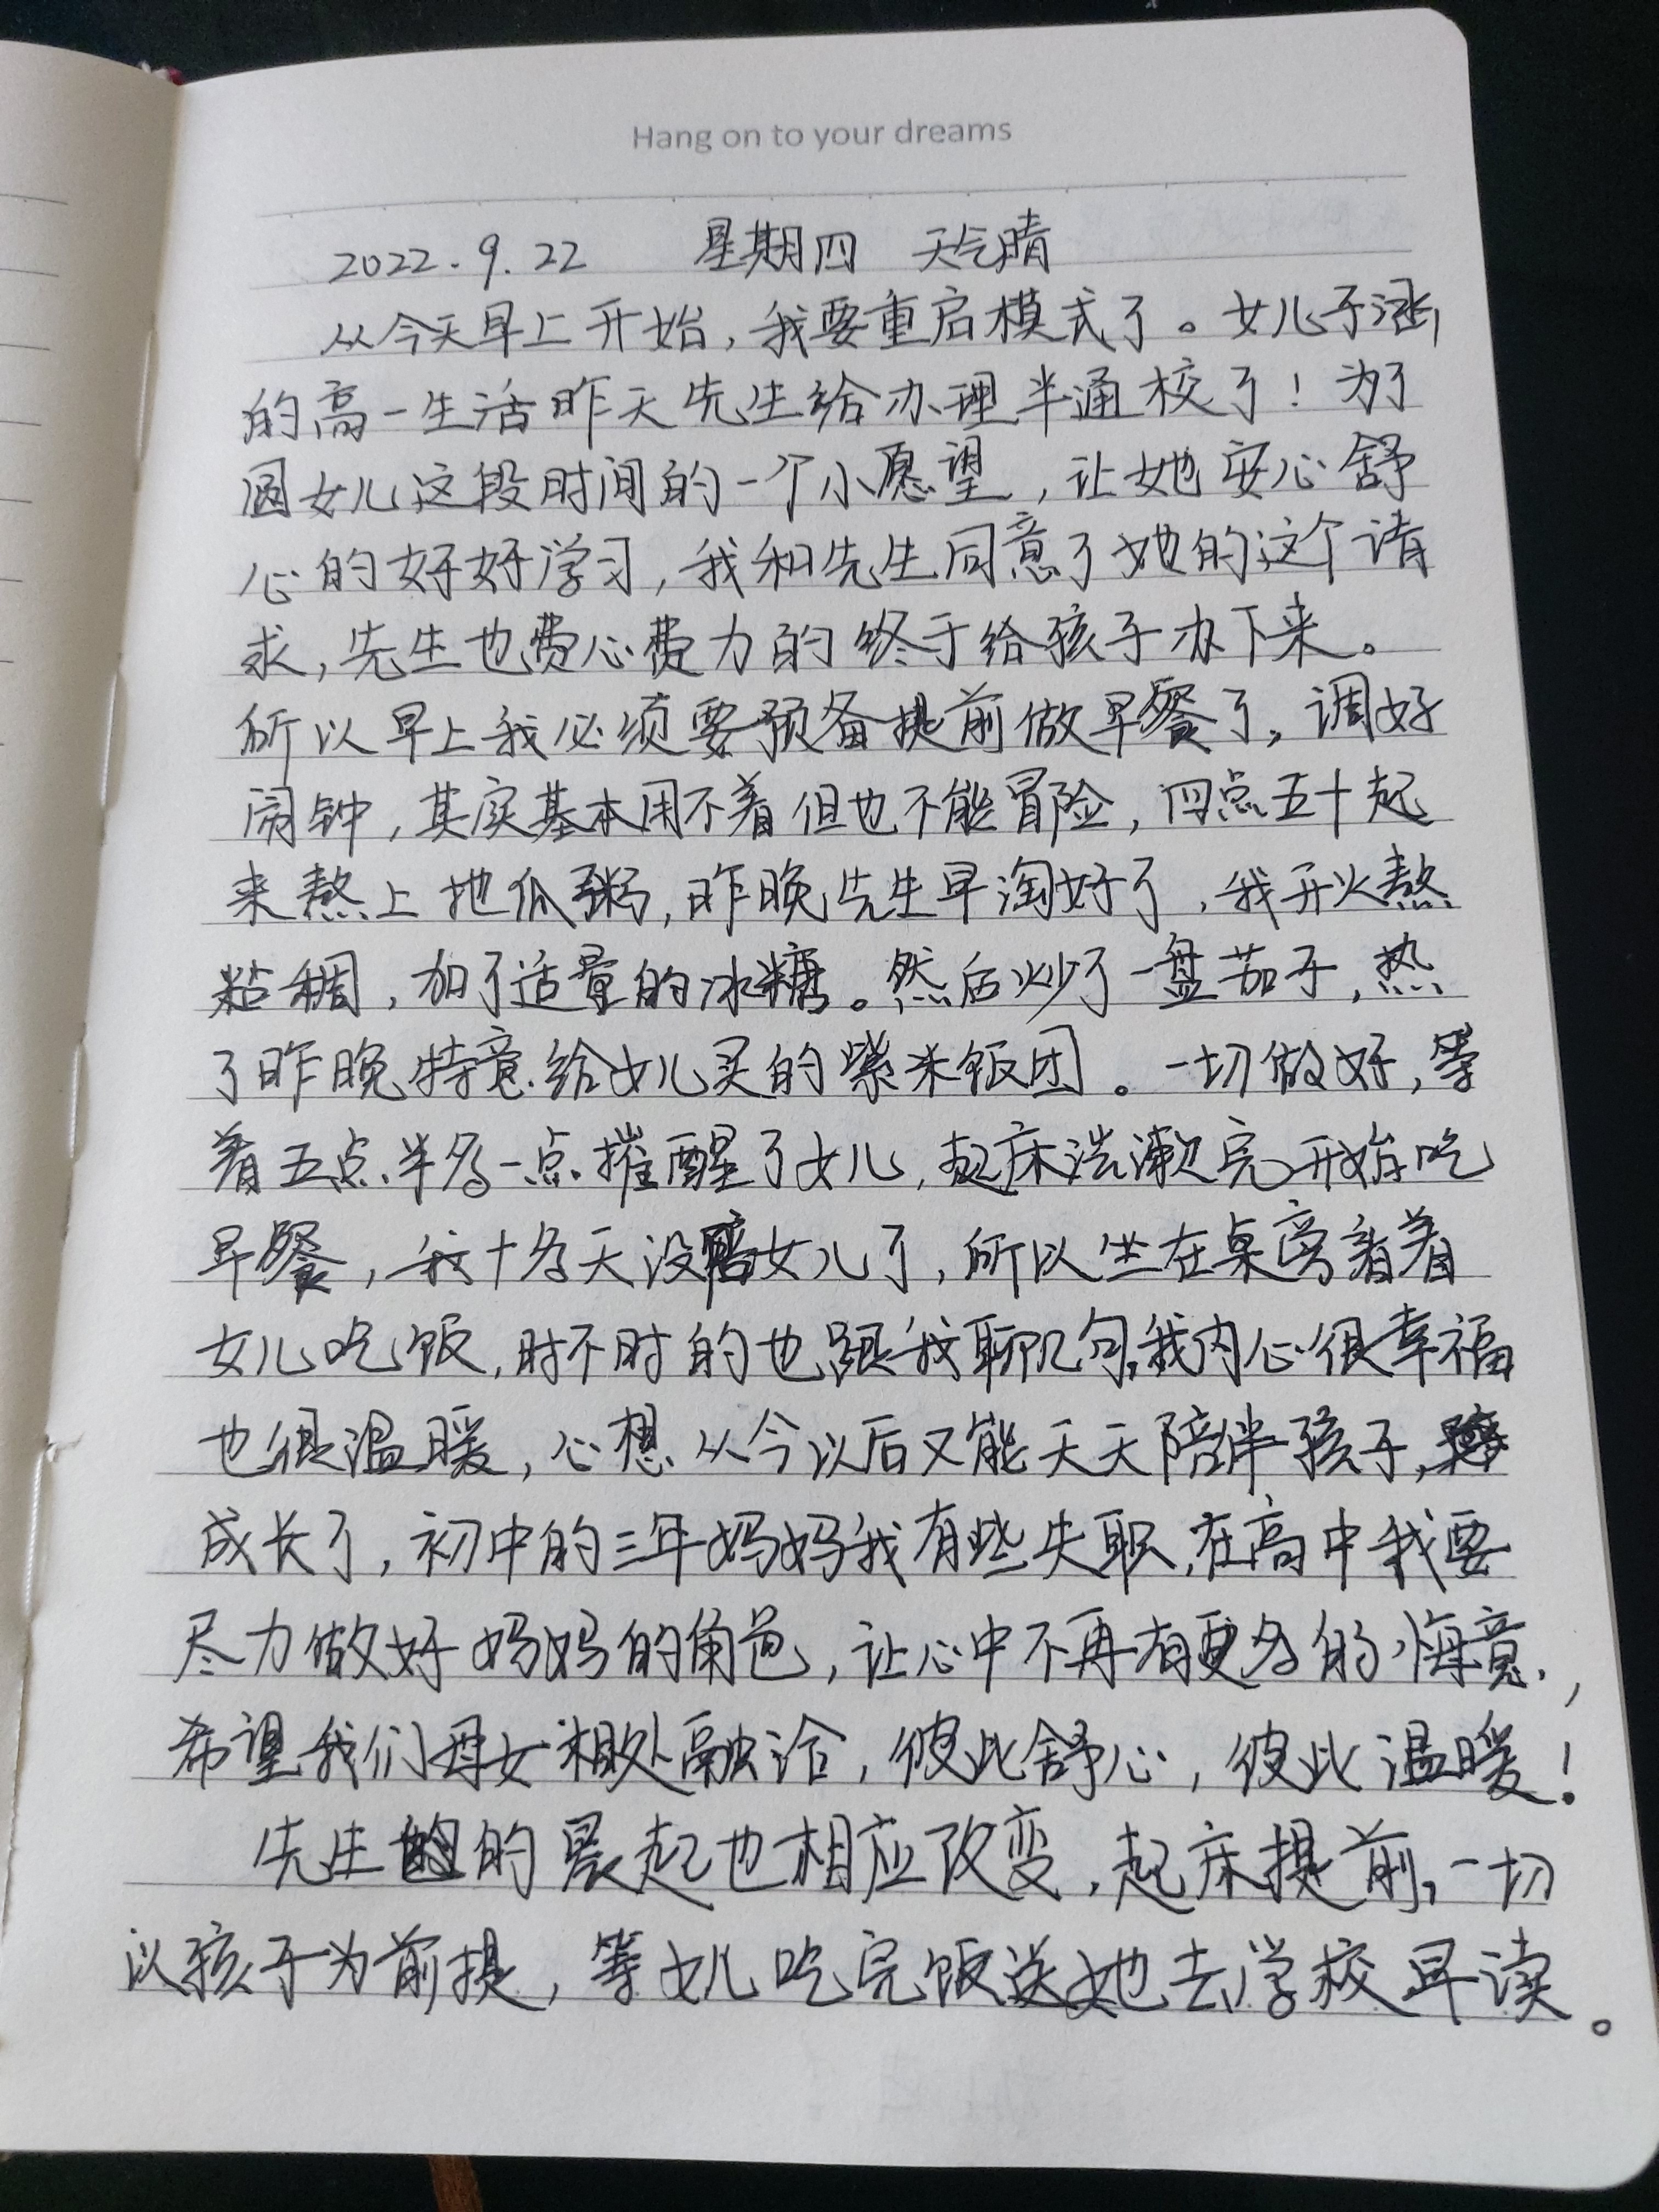 Hang on to your dreams
2022.9.22 星期四 天气晴
从今天早上开始,我要重启模式了。女儿子涵
的高一生活昨天先生给办理半通校了!为了
圆女儿这段时间的一个小愿望,让她安心舒
心的好好学习,我和先生同意了她的这个请
求,先生也费心费力的终于给孩子办下来。
所以早上我必须要预备提前做早餐了,调好
闹钟,其实基本用不着但也不能冒险,四点五十起
来熬上地瓜粥,昨晚先生早淘好了,我开火熬
粘稠,加了适量的冰糖。然后炒了一盘茄子,热
了昨晚特意给女儿买的紫米饭团。一切做好,等
着五点半多一点摧醒了女儿,起床洗漱完开始吃
早餐,我十多天没陪女儿了,所以坐在桌旁看着
女儿吃饭,时不时的也跟我聊几句,我内心很幸福
也很温暖,心想从今以后又能天天陪伴孩子,
成长了,初中的三年妈妈我有些失职,在高中我要
尽力做好妈妈的角色,让心中不再有更多的悔意,
希望我们母女相处融洽,彼此舒心,彼此温暖!
先生的晨起也相应改变,起床提前,一切
以孩子为前提,等女儿吃完饭送她去学校早读。